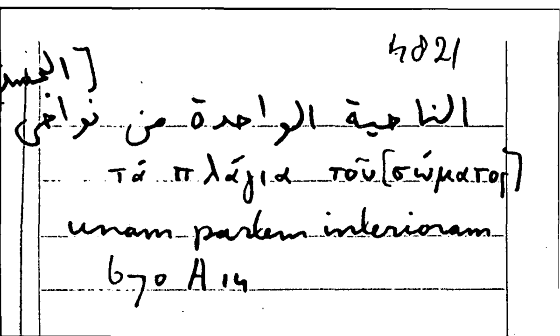 4821
الناحية الواحدة من نواحى [الجسد]
τά πλάγια τοῦ [σώματος]
unam partem interioram
670 A 14